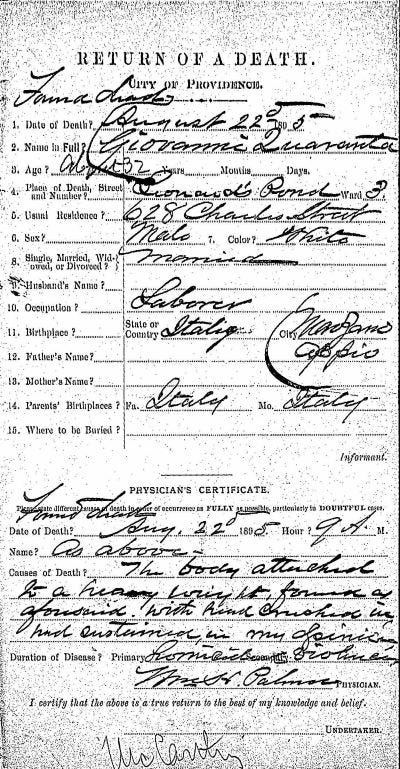 RETURN OF A DEATH.
CITY OF PROVIDENCE.
Found dead
1. Date of Death? August 22d 1895
2. Name in Full? Giovanni Quaranta
3. Age? about 37 Years Months Days.
4. Place of Death, Street and Number? Leonard's Pond Ward 3.
5. Usual Residence? 628 Charles Street
6. Sex? Male 7. Color? White
8. Single, Married, Widowed, or Divorced? Married
9. Husband's Name?
10. Occupation? Laborer
11. Birthplace? State or Country Italy City Marzano Appio
12. Father's Name?
13. Mother's Name?
14. Parents' Birthplaces? Fa. Italy Mo. Italy
15. Where to be Buried?
Informant.
PHYSICIAN'S CERTIFICATE.
Please state different causes of death in order of occurrence as FULLY as possible, particularly in DOUBTFUL cases.
Found dead
Date of Death? Aug. 22d 1895 Hour? 9 A. M.
Name? As above -
Causes of Death? The body attached
to a heavy weight, found as
aforesaid. With head crushed in
had sustained in my opinion
Duration of Disease? Primary Homicidal Secondary Violence
Wm. H. Palmer PHYSICIAN.
I certify that the above is a true return to the best of my knowledge and belief.
UNDERTAKER.
McCarthy